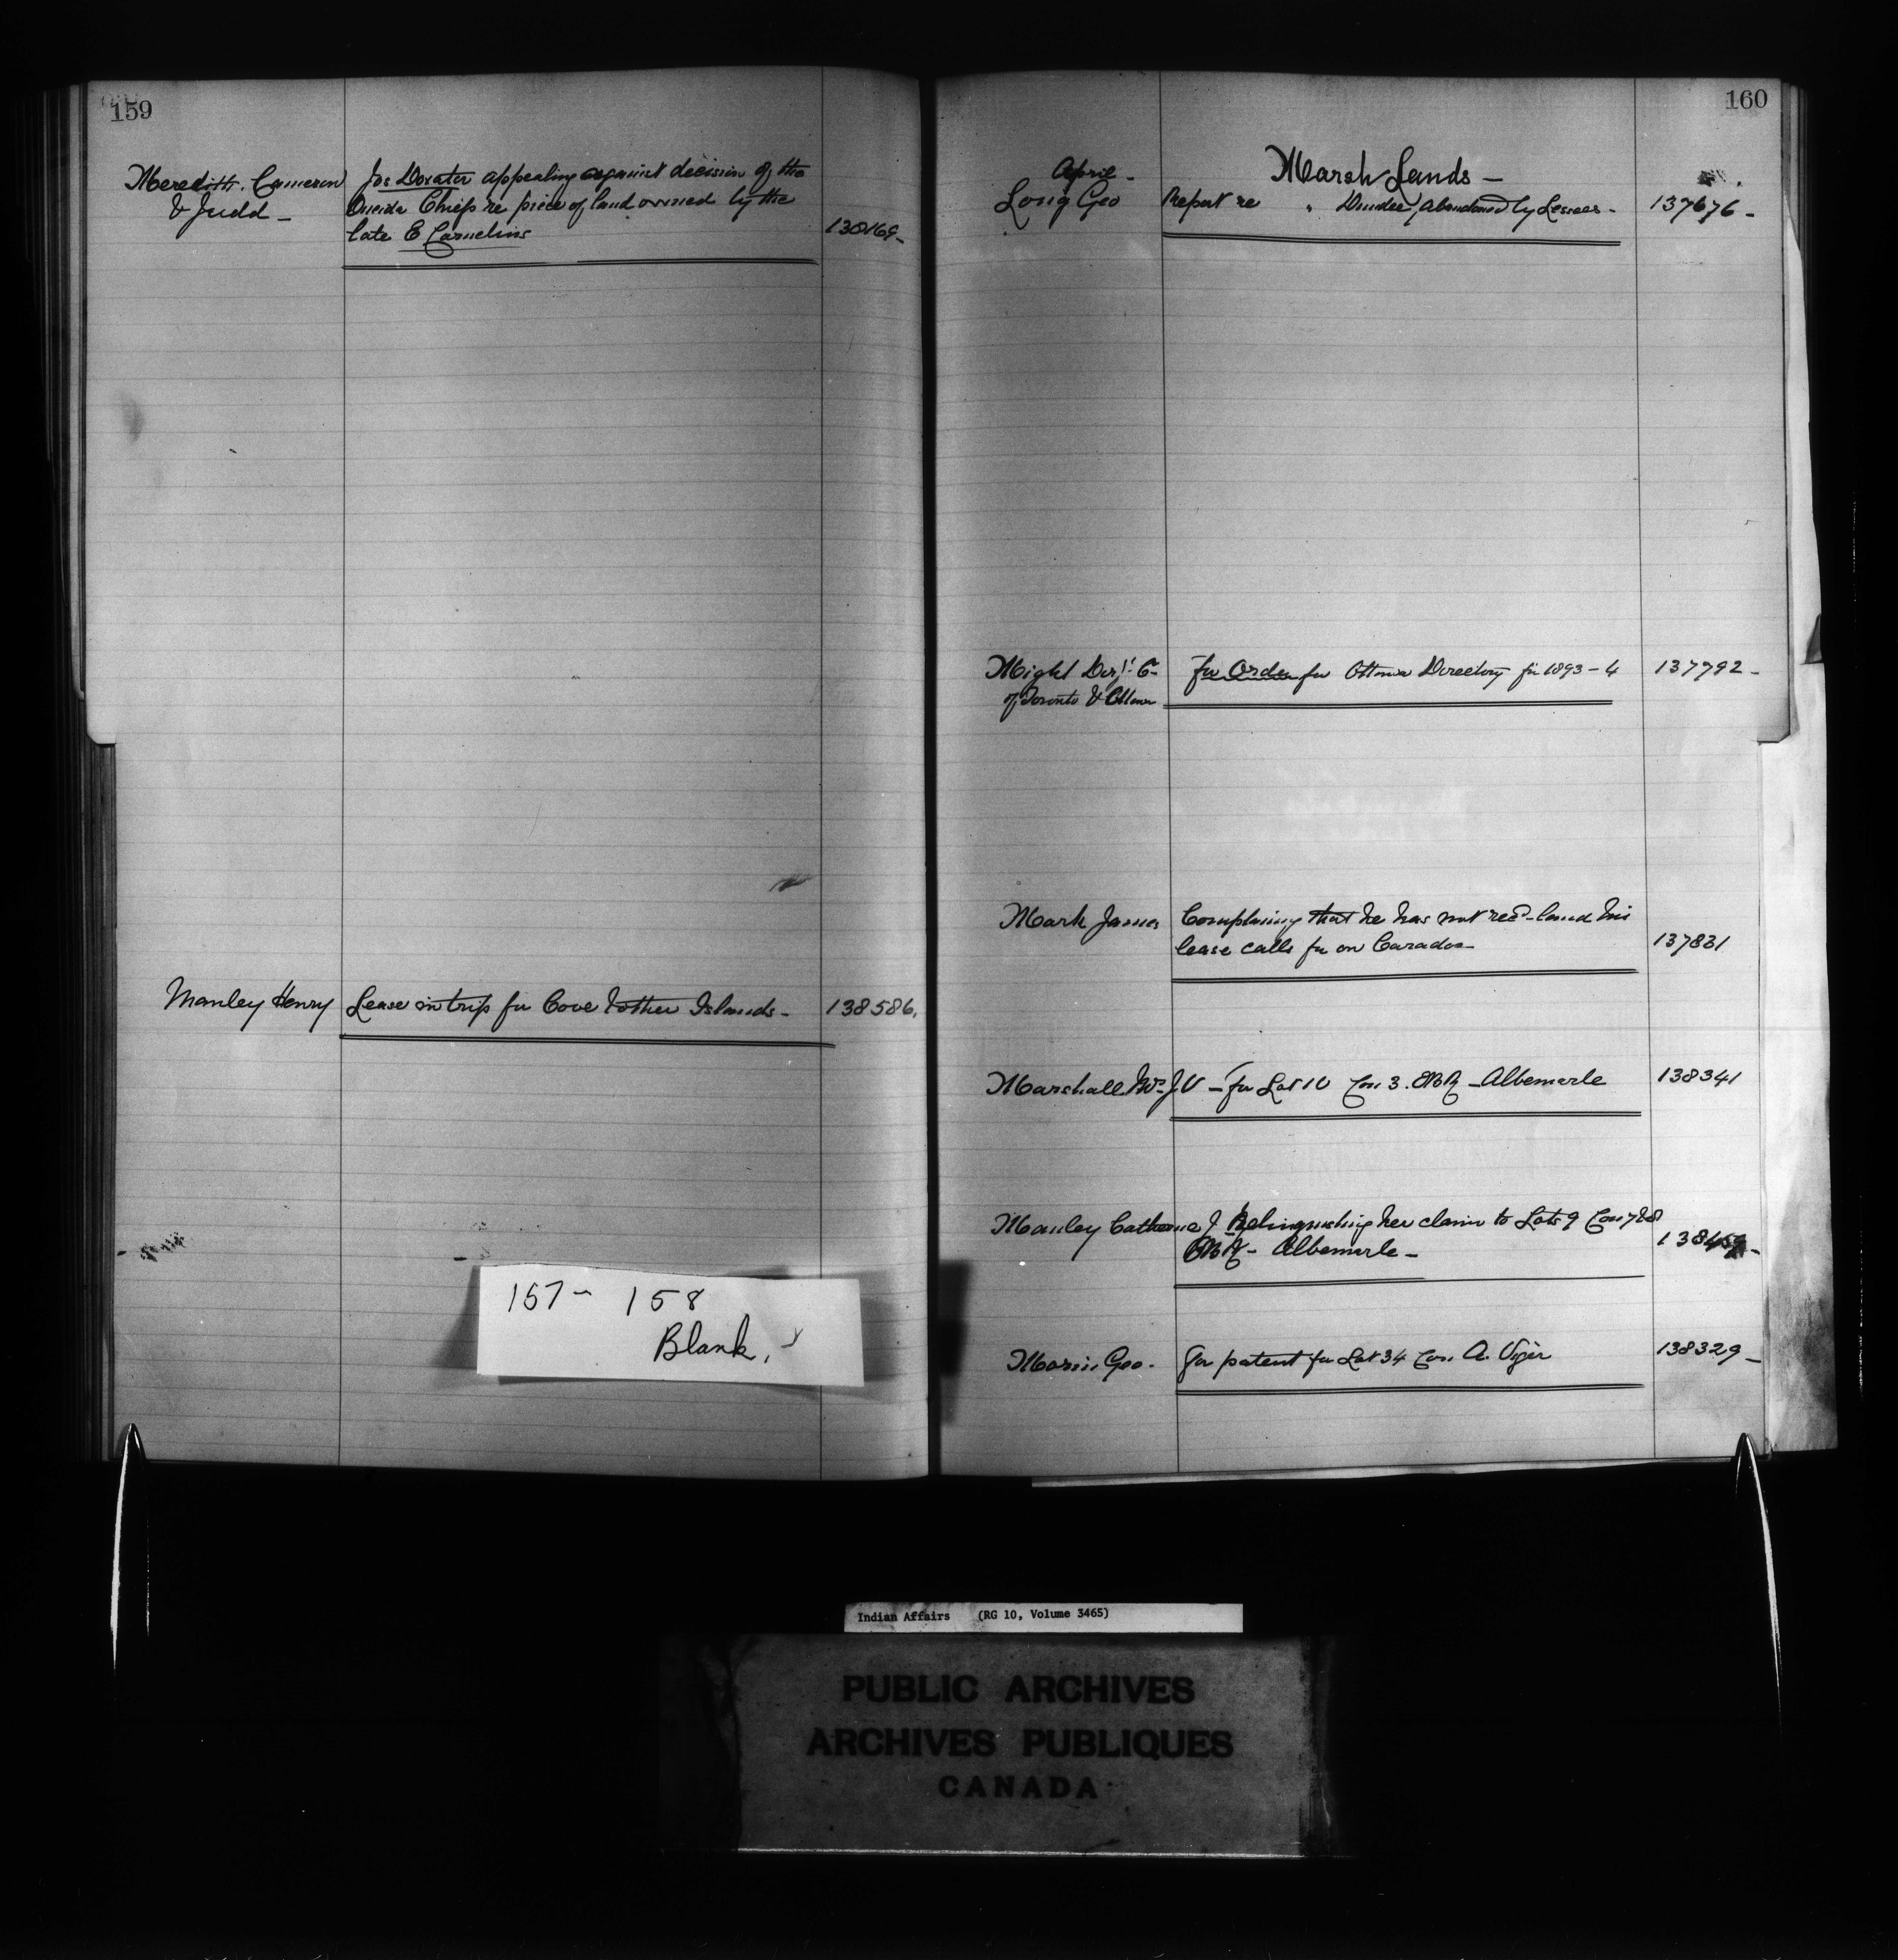 159
Meredith. Cameron
& Judd -
Jos Doxater appealing against decision of the
Oneida Chiefs re piece of land owned by the
late E Cornelius
130169-
Manley Henry
Lease in trip for Cove & other Islands -
138586.
157 - 158
Blank,
160
April -
Marsh Lands -
Long Geo
Report re " Dundee abandoned by Lessees -
137676 -
Might Dir'y Co
of Toronto & Ottawa
For Order for Ottawa Directory for 1893-4
137792 -
Mark James
Complaining that he has not rec'd land his
lease calls for on Caradoc -
137831
Marshall Mrs J V - For Lot 10 Con 3. EBR - Albemarle
138341
Manley Catherine J Relinquishing her claim to Lots 9 Con 7 & 8
EBR - Albemarle -
Geo.
For patent for Lot 34 Con. A. Viger
138329 -
Indian Affairs (RG 10, Volume 3465)
PUBLIC ARCHIVES
ARCHIVES PUBLIQUES
CANADA